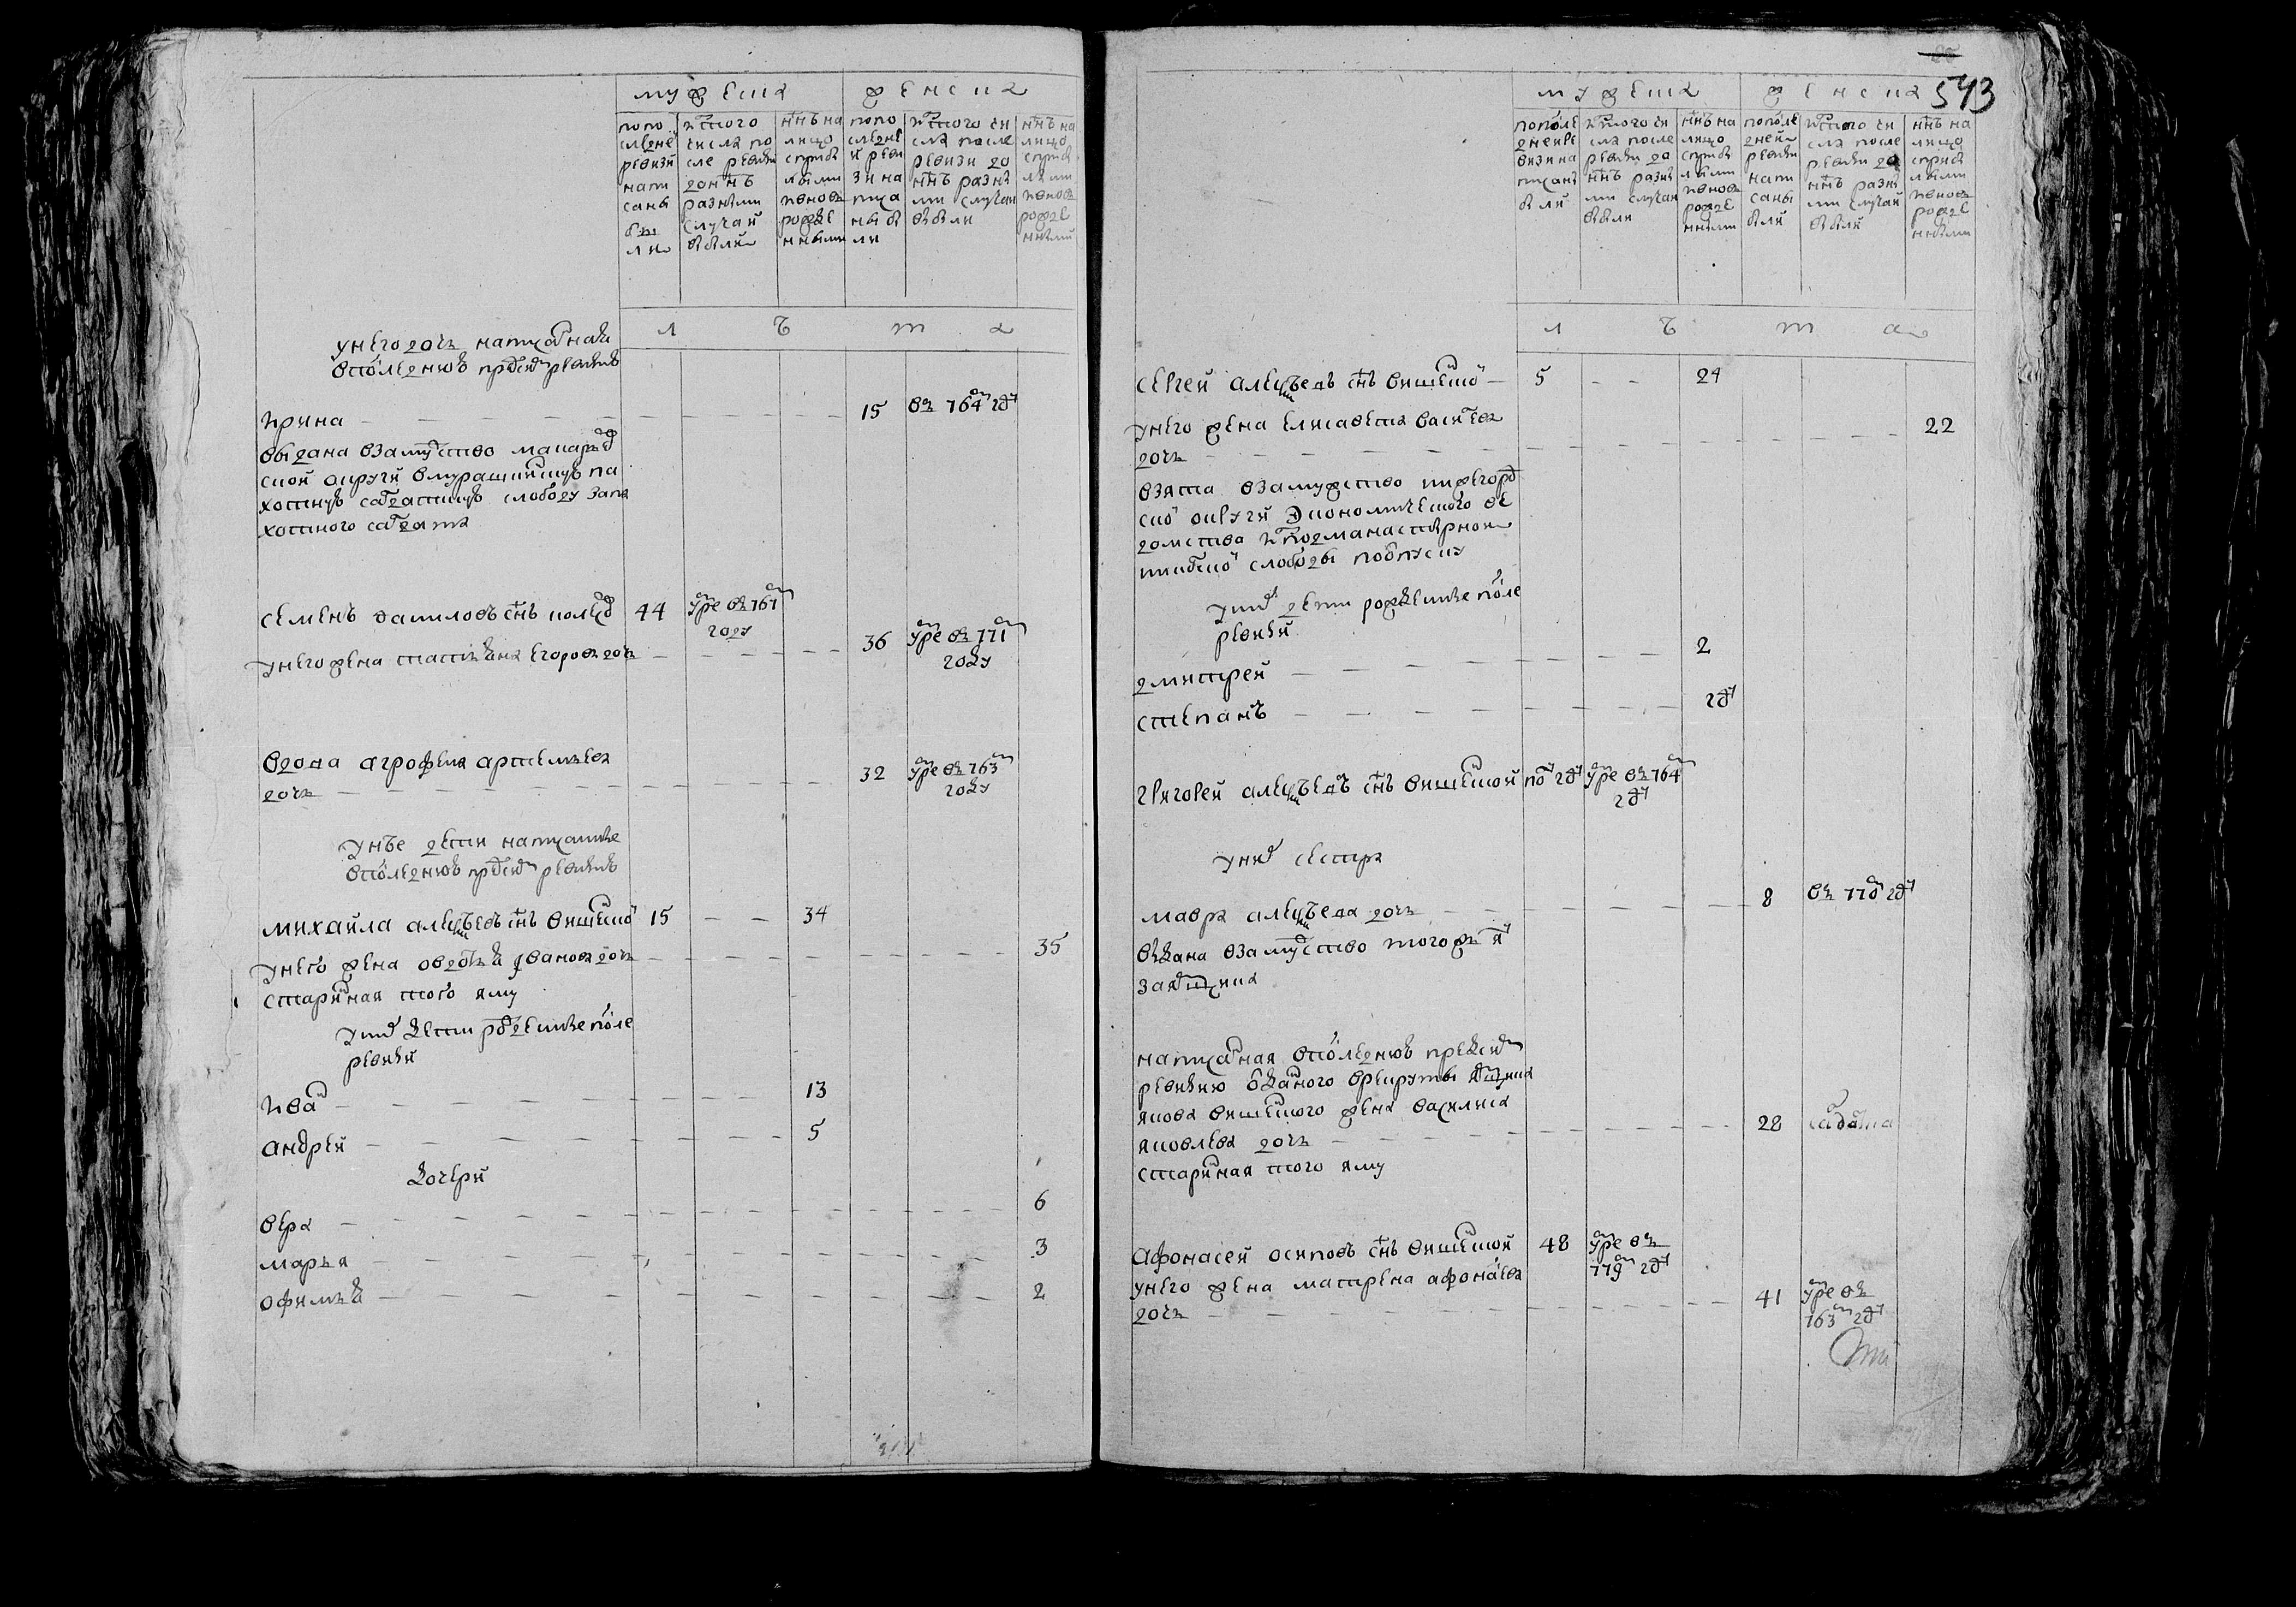 мужеска женска
попо следне ревизи напи саны бы ли
ис того числа по сле ревизи до ннѣ разными случаи выбыли
ннѣ на лицо с прибы лыми и вновь рожде нными
попо следне й реви зи на писа ны бы ли
ис того чи сла после ревизи до ннѣ разны ми случаи выбыли
ннѣ на лицо с прибы лыми и вновь рожде нными
л ѣ т а
у него дочь написанная
в последнюю пред сим ревизию
ирина 15 въ 764м году
выдана в замужство макарьев
ской округи в мурашкинскую па
хотную салдатскую слободу за па
хотного салдата
семенъ даниловъ снъ 44 умре въ 767м
году
у него жена татьяна егорова дочь 36 умре въ 771м
году
вдова агрофена артемьева
дочь 32 умре въ 763м
году
у нее дети написанные
в последнюю пред сим ревизию
михайла алексѣевъ снъ вишевской 15 34
у него жена овдотья иванова дочь 35
старинная того яму
у них дети рожденные после
ревизи
иван 13
андрей 5
дочери
вера 6
марья 3
офимья 2
543
мужеска женска
попосле дней ре визи на писаны были
ис того чи сла после ревизи до ннѣ разны ми случаи выбыли
ннѣ на лицо с прибы лыми и вновь рожде нными
попосле дней ревизи напи саны были
ис того чи сла после ревизи до ннѣ разны ми случаи выбыли
ннѣ на лицо с прибы лыми и вновь рожде нными
л ѣ т а
сергей алексѣевъ снъ вишевской 5 24
у него жена елисавета васильева
дочь 22
взята в замужество нижегород
ской округи экономического ве
домства ис подманастырной
слободы по отпуску
у них дети рожденные после
ревизи
дмитрей 2
степанъ году
григорей алексѣевъ снъ вишевской полгоду умре въ 764м
году
у них сестра
мавра алексѣева дочь 8 въ 770м году
выдана в замужство того жъ яму
за ямщика
написанная в последнюю пред сим
ревизию отданного в рекруты ямщика
якова вишевского жена василиса
яковлева дочь 28
старинная того яму
афонасей осиповъ снъ вишевской 48 умре въ
779м году
у него жена матрена афонасьева
дочь 41 умре въ
763м году